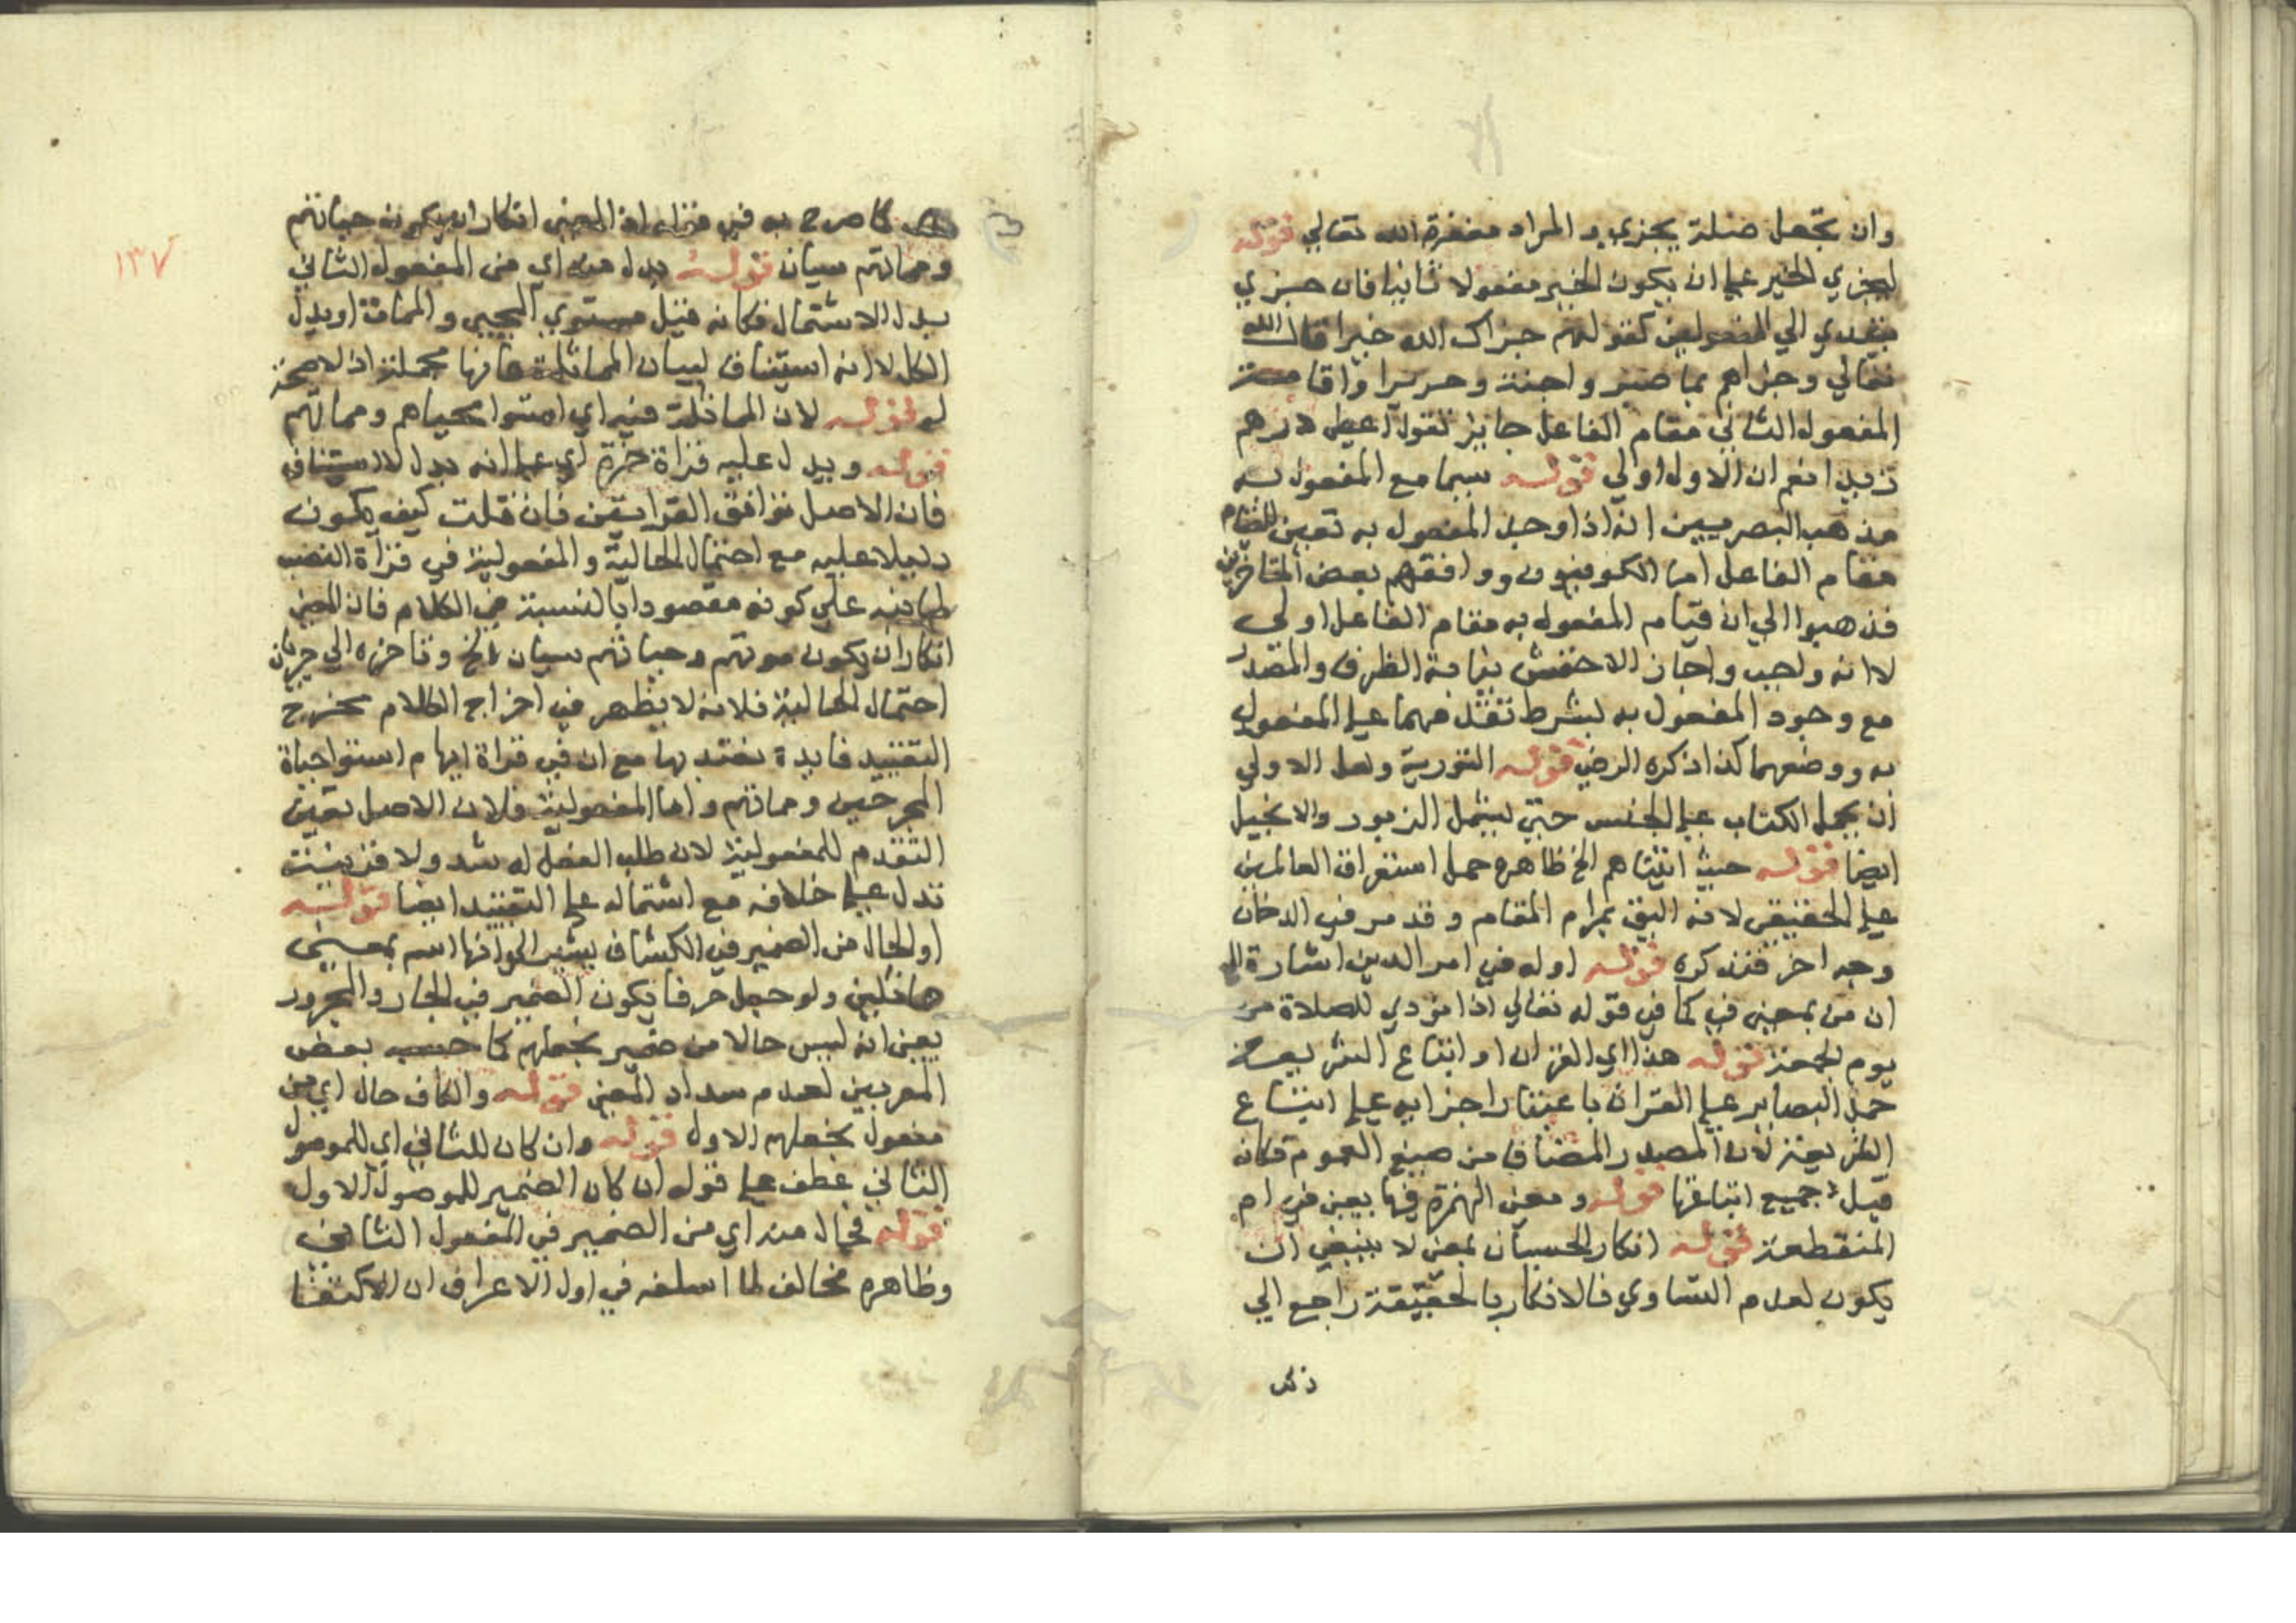 وان تجعل صلة يجزي و المراد مغفرة الله تعالي قوله
ليجزي الخير علي ان يكون الخير مفعولا ثانيا فان جزي
يتعدي الي المفعولين كقولهم جزاك الله خيرا قال الله
تعالي وجزاهم بما صبروا جنة وحريرا واقامة
المفعول الثاني مقام الفاعل جايز تقول اعطي درهم
زيدا نعم ان الاول اولي قوله سيما مع المفعول به
مذهب البصريين انه اذا وجد المفعول به تعين للقيام
مقام الفاعل اما الكوفيون ووافقهم بعض المتاخرين
فذهبوا الي ان قيام المفعول به مقام الفاعل اولي
لا انه واجب واجاز الاخفش نيابة الظرف والمصدر
مع وجود المفعول به بشرط تقدمهما علي المفعول
به ووصفهما كذا ذكره الرضي قوله التورية ولعل الاولي
ان يحمل الكتاب علي الجنس حتي يشمل الزبور والانجيل
ايضا قوله حيث اتيناهم الخ ظاهره حمل استغراق العالمين
علي الحقيقي لانه اليق بمرام المقام وقد مر في الدخان
وجه اخر فتذكره قوله اوله في امر الدين اشارة الي
ان من بمعني في كما في قوله تعالي اذا نودي للصلاة من
يوم الجمعة قوله هذا اي القران او اتباع الشريعة
حمل البصاير علي القران باعتبار اجزايه علي اتباع
الشريعة لان المصدر المضاف من صيغ العموم فكانه
قيل جميع اتباعها قوله ومعني الهمزة فيها يعني في ام
المنقطعة قوله انكار الحسبان بمعني لا ينبغي ان
يكون لعدم التساوي فالانكار بالحقيقة راجع الي
كما صرح به في قراة اذ المعني انكار ان يكون حياتهم
١٣٧
ومماتهم سيان قوله بدل منه اي من المفعول الثاني
بدل الاشتمال فكانه قيل مستوي المحيي والممات او بدل
الكل لا انه استيناف لبيان المماثلة فانها مجملة اذ لا صحة
له قوله لان المماثلة فيه اي استوا محياهم ومماتهم
قوله ويدل عليه قراة حمزة اي علي انه بدل لا استيناف
فان الاصل توافق القراتين فان قلت كيف يكون
دليلا عليه مع احتمال الحالية والمفعولية في قراة النصب
علي كونه مقصودا بالنسبة في الكلام فان المعني
انكار ان يكون موتهم وحياتهم سيان الخ
احتمال الحالية فلانه لا يظهر في اخراج الكلام مخرج
التقييد فايدة يعتد بها مع ان في قراة ايهام استوا حياة
المجرمين ومماتهم واما المفعولية فلان الاصل تعين
التقدم للمفعولية لان طلب الفعل له شد ولا قرينة
تدل علي خلافه مع اشتماله علي التقييد ايضا قوله
او الحال من الضمير في الكشاف يشير الي انها اسم بمعني
ولو جعل حرفا يكون الضمير في الجار والمجرور
يعني انه ليس حالا من ضمير نجعلهم كما حسبه بعض
المعربين لعدم سداد المعني قوله والكاف حال اي من
مفعول نجعلهم الاول قوله وان كان للثاني اي للموصول
الثاني عطف علي قوله ان كان الضمير للموصول الاول
قوله فحال منه اي من الضمير في المفعول الثاني
وظاهره مخالف لما اسلفه في اول الاعراف ان الاكتفا